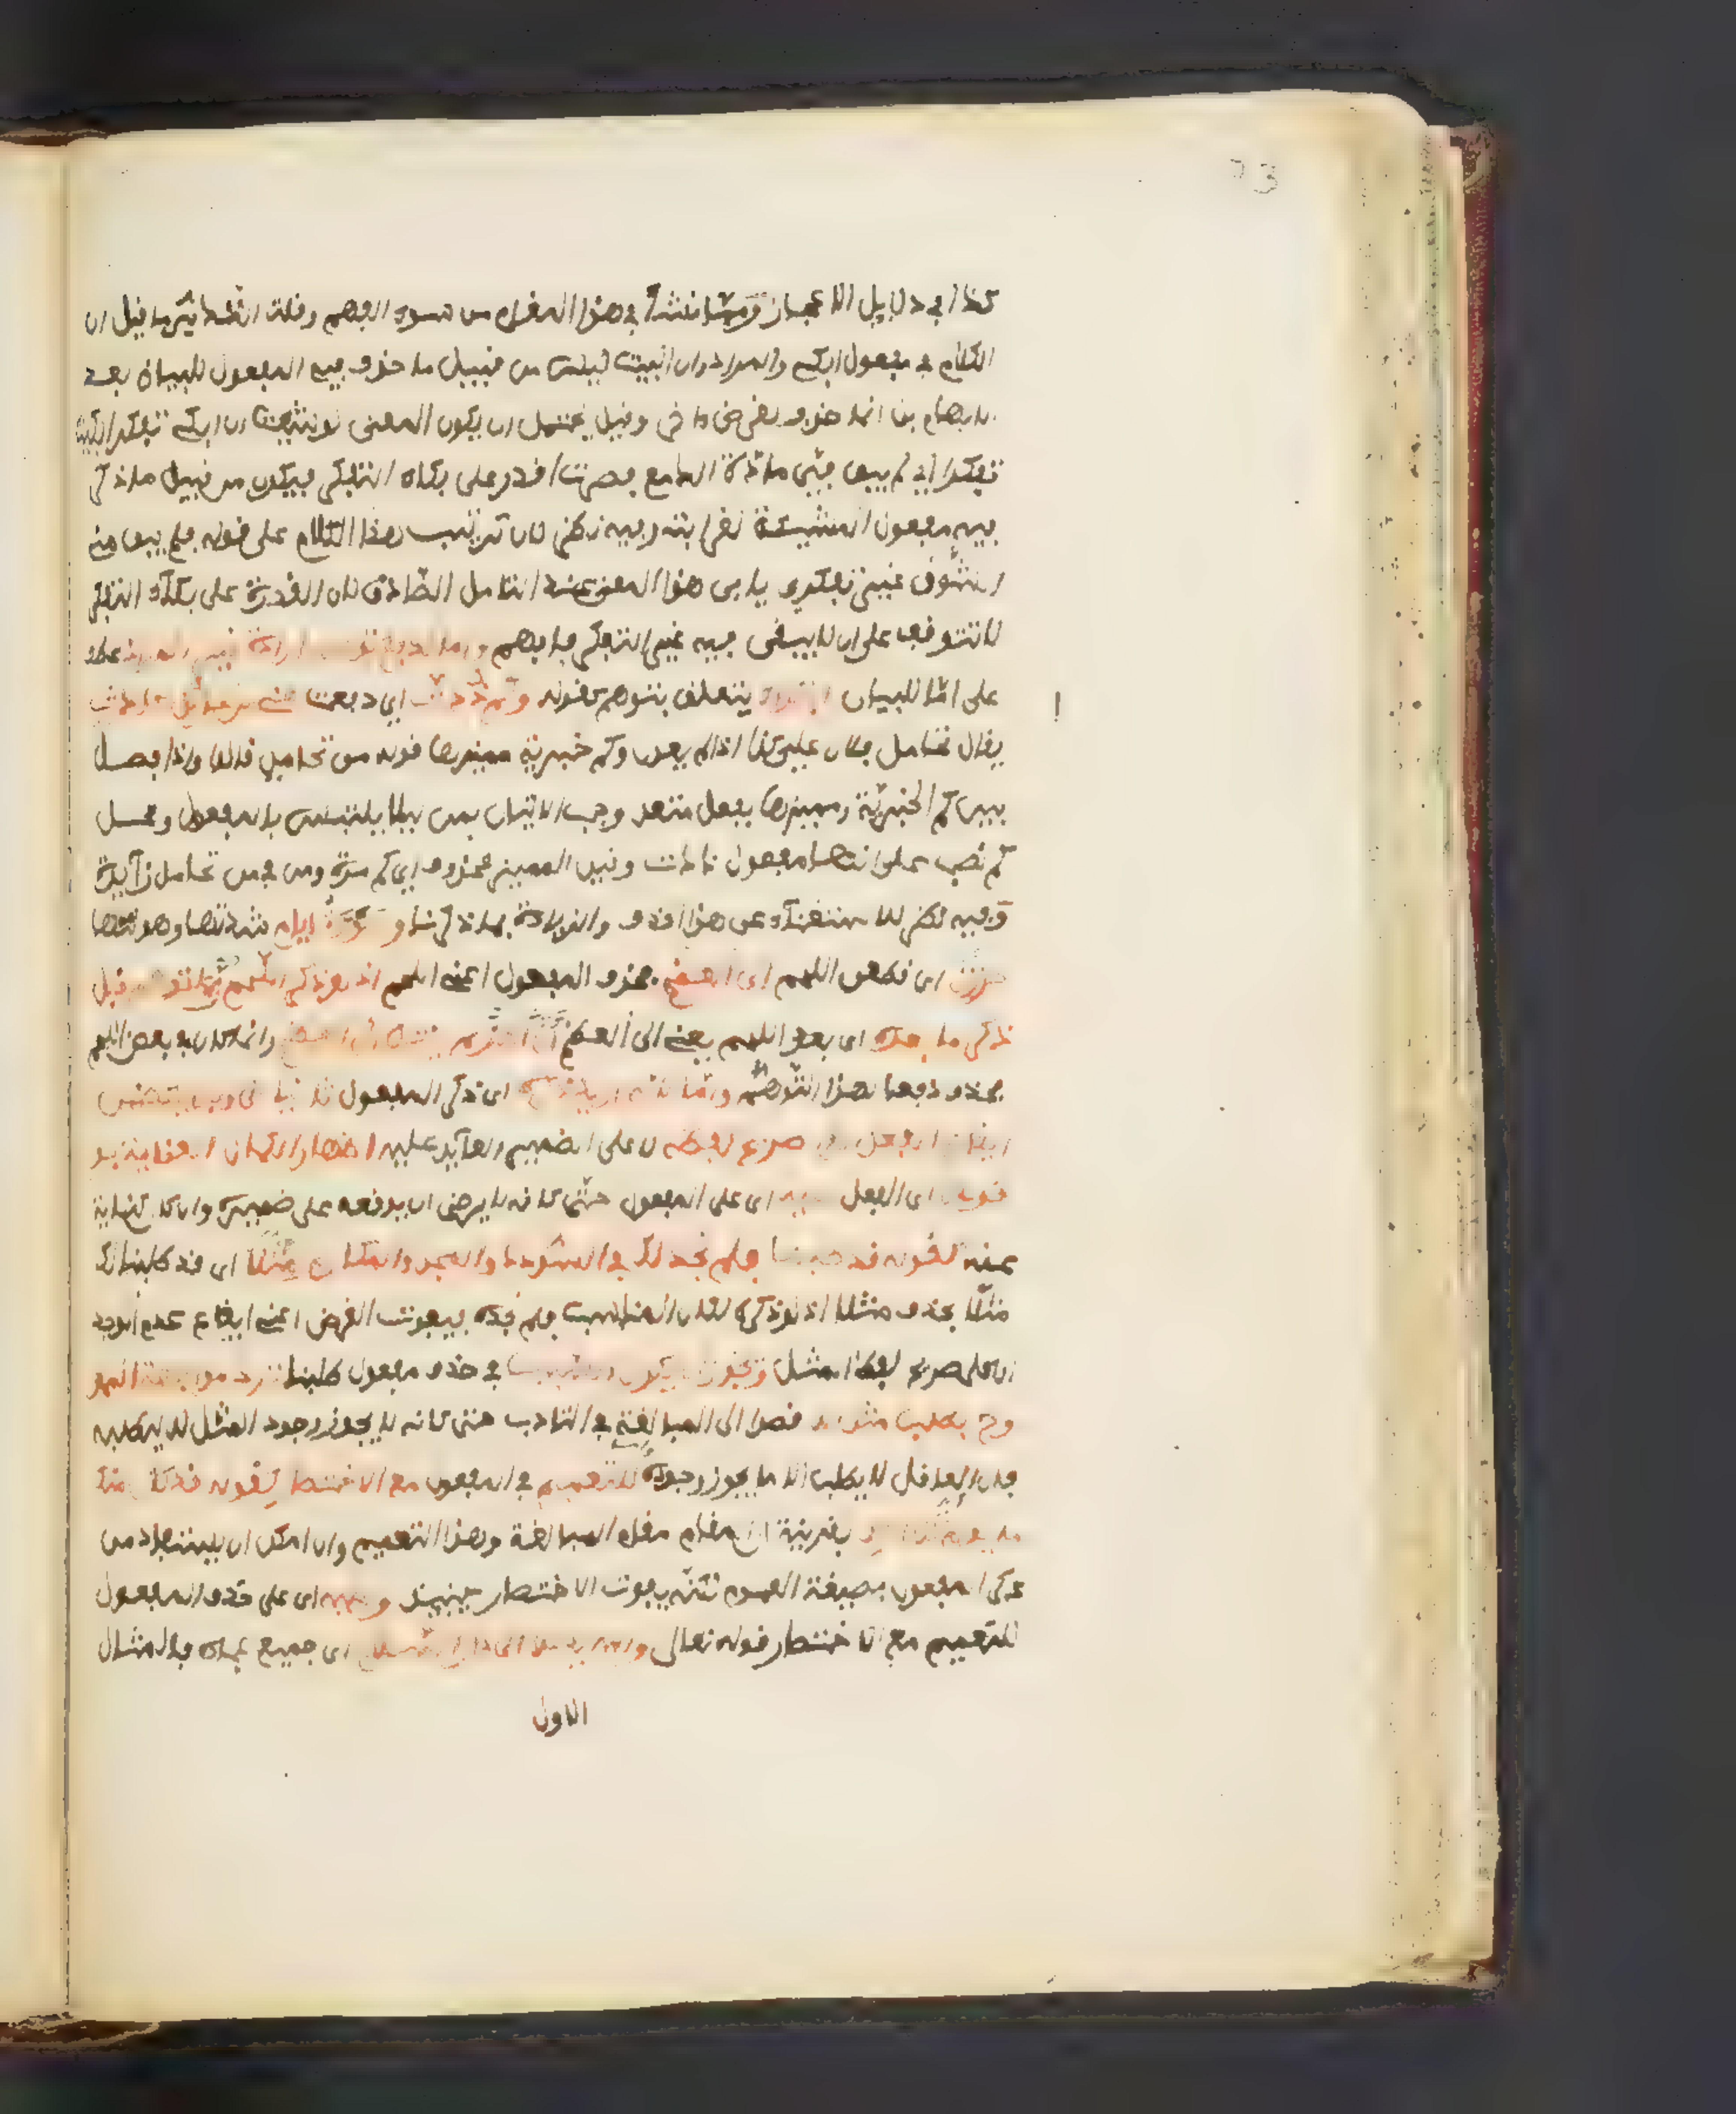 كذا في دلايل الاعجاز ومما نشأ في هذا المقام من سوء الفهم وقلة التدبر ما قيل ان
الكلام في مفعول ابكي والمراد ان البيت ليس من قبيل ما حذف فيه المفعول للبيان بعد
الابهام بل انما حذف لغرض اخر وقيل يحتمل ان يكون المعنى لو شئت ان ابكي تفكرا بكيت
تفكرا اي لم يبق في مادة الدمع فصرت اقدر على بكاء التفكر فيكون من قبيل ما ذكر
فيه مفعول المشيئة لغرابته وفيه نظر لان ترتب هذا الكلام على قوله فلم يبق مني
الشوق غير تفكري يابى هذا المعنى عند التامل الصادق لان القدرة على بكاء التفكر
لا تتوقف على ان لا يبقى فيه غير التفكر فافهم واما لدفع توهم ارادة غير المراد عطف
على اما للبيان ابتداء يتعلق بتوهم كقوله وكم ذدت اي دفعت عني من تحامل حادث
يقال تحامل فلان علي كذا اذا لم يعدل وكم خبرية مميزها قوله من تحامل قالوا واذا فصل
بين كم الخبرية ومميزها بفعل متعد وجب الاتيان بمن ليلا يلتبس بالمفعول ومحل
كم نصب على انها مفعول ذدت وقيل المميز محذوف اي كم مرة ومن في من تحامل زايدة
وفيه نظر للاستغناء عن هذا الحذف والزيادة بما ذكرنا وسورة ايام شدتها وصولتها
حززن اي قطعن اللحم الى العظم فحذف المفعول اعني اللحم اذ لو ذكر اللحم لربما توهم قبل
ذكر ما بعده اي بعد اللحم يعني الى العظم ان الحز لم ينته الى العظم وانما كان في بعض اللحم
فحذف دفعا لهذا التوهم واما لانه اريد ذكره اي ذكر المفعول ثانيا على وجه يتضمن
ايقاع الفعل على صريح لفظه لا على الضمير العايد عليه اظهارا لكمال العناية بو
قوعه اي الفعل عليه اي على المفعول حتى كانه لا يرضى ان يوقعه على ضميره وان كان كناية
عنه كقوله قد طلبنا فلم نجد لك في السؤدد والمجد والمكارم مثلا اي قد طلبنا لك
مثلا فحذف مثلا اذ لو ذكره لكان المناسب فلم نجده فيفوت الغرض اعني ايقاع عدم الوجدان
على صريح لفظ المثل ويجوز ان يكون السبب في حذف مفعول طلبنا ترك مواجهة الممدوح
وح بطلب مثل له قصدا الى المبالغة في التادب حتى كانه لا يجوز وجود المثل له ليطلبه
فان العاقل لا يطلب الا ما يجوز وجوده واما للتعميم في المفعول مع الاختصار كقوله قد كان منك
ما يولم اي كل احد بقرينة ان المقام مقام المبالغة وهذا التعميم وان امكن ان يستفاد من
ذكر المفعول بصيغة العموم لكنه يفوت الاختصار حينيذ وعليه اي على حذف المفعول
للتعميم مع الاختصار قوله تعالى والله يدعوا الى دار السلام اي جميع عباده فالمثال
الاول